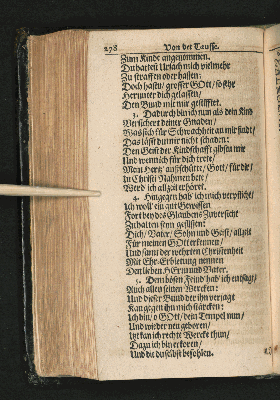 278 Von der Tauffe.
Zum Kinde angenommen.
Du hattest Ursach mich vielmehr
Zu straffen oder hassen:
Doch hastu/ grosser GOtt/ so sehr
Herunter dich gelassen/
Den Bund mit mir gestifftet.
3. Dadurch bin ich nun als dein Kind
Versichert deiner Gnaden/
Was sich für Schwachheit an mir findt/
Das lässt du mir nicht schaden:
Den Geist der Kindschafft gibst du mir
Und wenn ich für dich trete/
Mein Hertz ausschütte/ Gott/ für dir/
In Christi Nahmen bete/
Werd ich allzeit erhöret.
4. Hingegen hab ich mich verpflicht/
Ich woll ein gut Gewissen
Fort bey des Glaubens Zuversicht
Zu halten seyn geflissen:
Dich/ Vater/ Sohn und Geist/ allzeit
Für meinen GOtt erkennen/
Und samt der wehrten Christenheit
Mit Ehr-Erbietung nennen
Den lieben HErrn und Vater.
5. Dem bösen Feind hab ich entsagt/
Auch allen seinen Wercken:
Und dieser Bund der ihn verjagt
Kan gegen ihn mich stärcken:
Ich bin/ o GOtt/ dein Tempel nun/
Und wieder neu geboren/
Itzt kan ich rechte Wercke thun/
Dazu ich bin erkoren/
Und die du selbst befohlen.